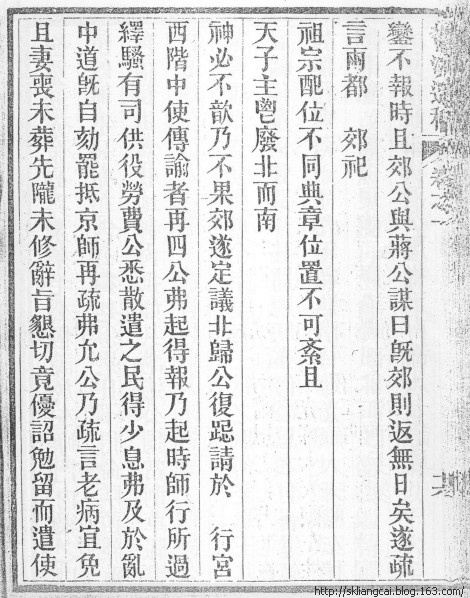 鑾不報時且郊公與蔣公謀曰旣郊則返無日矣遂疏
言兩都 郊祀
祖宗配位不同典章位置不可紊且
天子主鬯廢北而南
神必不歆乃不果郊遂定議北歸公復跽請於 行宮
西階中使傳諭者再四公弗起得報乃起時師行所過
繹騷有司供役勞費公悉散遣之民得少息弗及於亂
中道旣自劾罷抵京師再疏弗允公乃疏言老病宜免
且妻喪未葬先隴未修辭旨懇切竟優詔勉留而遣使
http://skliangcai.blog.163.com/